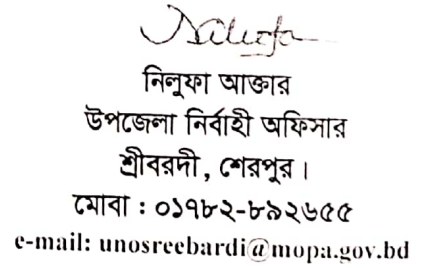 Nilufa
নিলুফা আক্তার
উপজেলা নির্বাহী অফিসার
শ্রীবরদী, শেরপুর ।
মোবা : ০১৭৮২-৮৯২৬৫৫
e-mail: unosreebardi@mopa.gov.bd